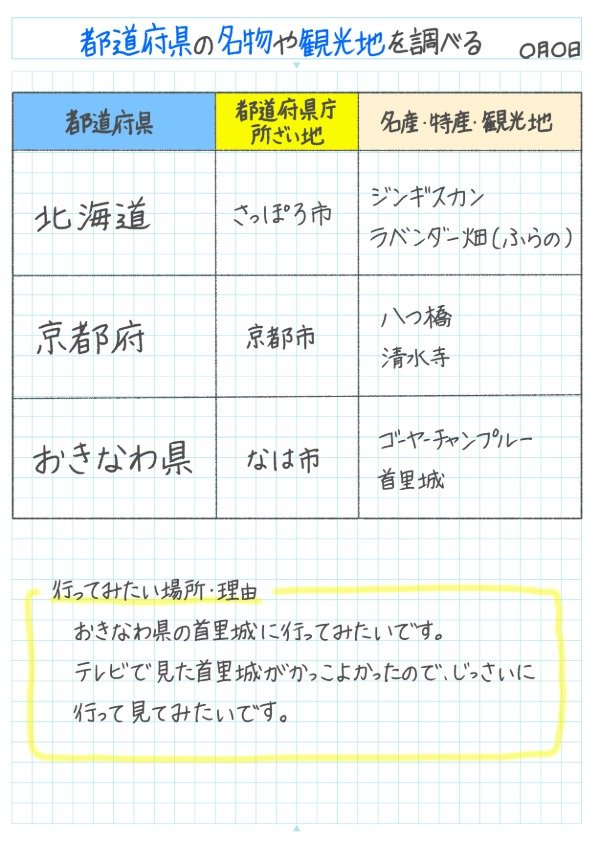 都道府県の名物や観光地を調べる 〇月〇日
都道府県
都道府県庁
所ざい地
名産・特産・観光地
北海道
さっぽろ市
ジンギスカン
ラベンダー畑(ふらの)
京都府
京都市
八つ橋
清水寺
おきなわ県
なは市
ゴーヤーチャンプルー
首里城
行ってみたい場所・理由
おきなわ県の首里城に行ってみたいです。
テレビで見た首里城がかっこよかったので、じっさいに
行って見てみたいです。